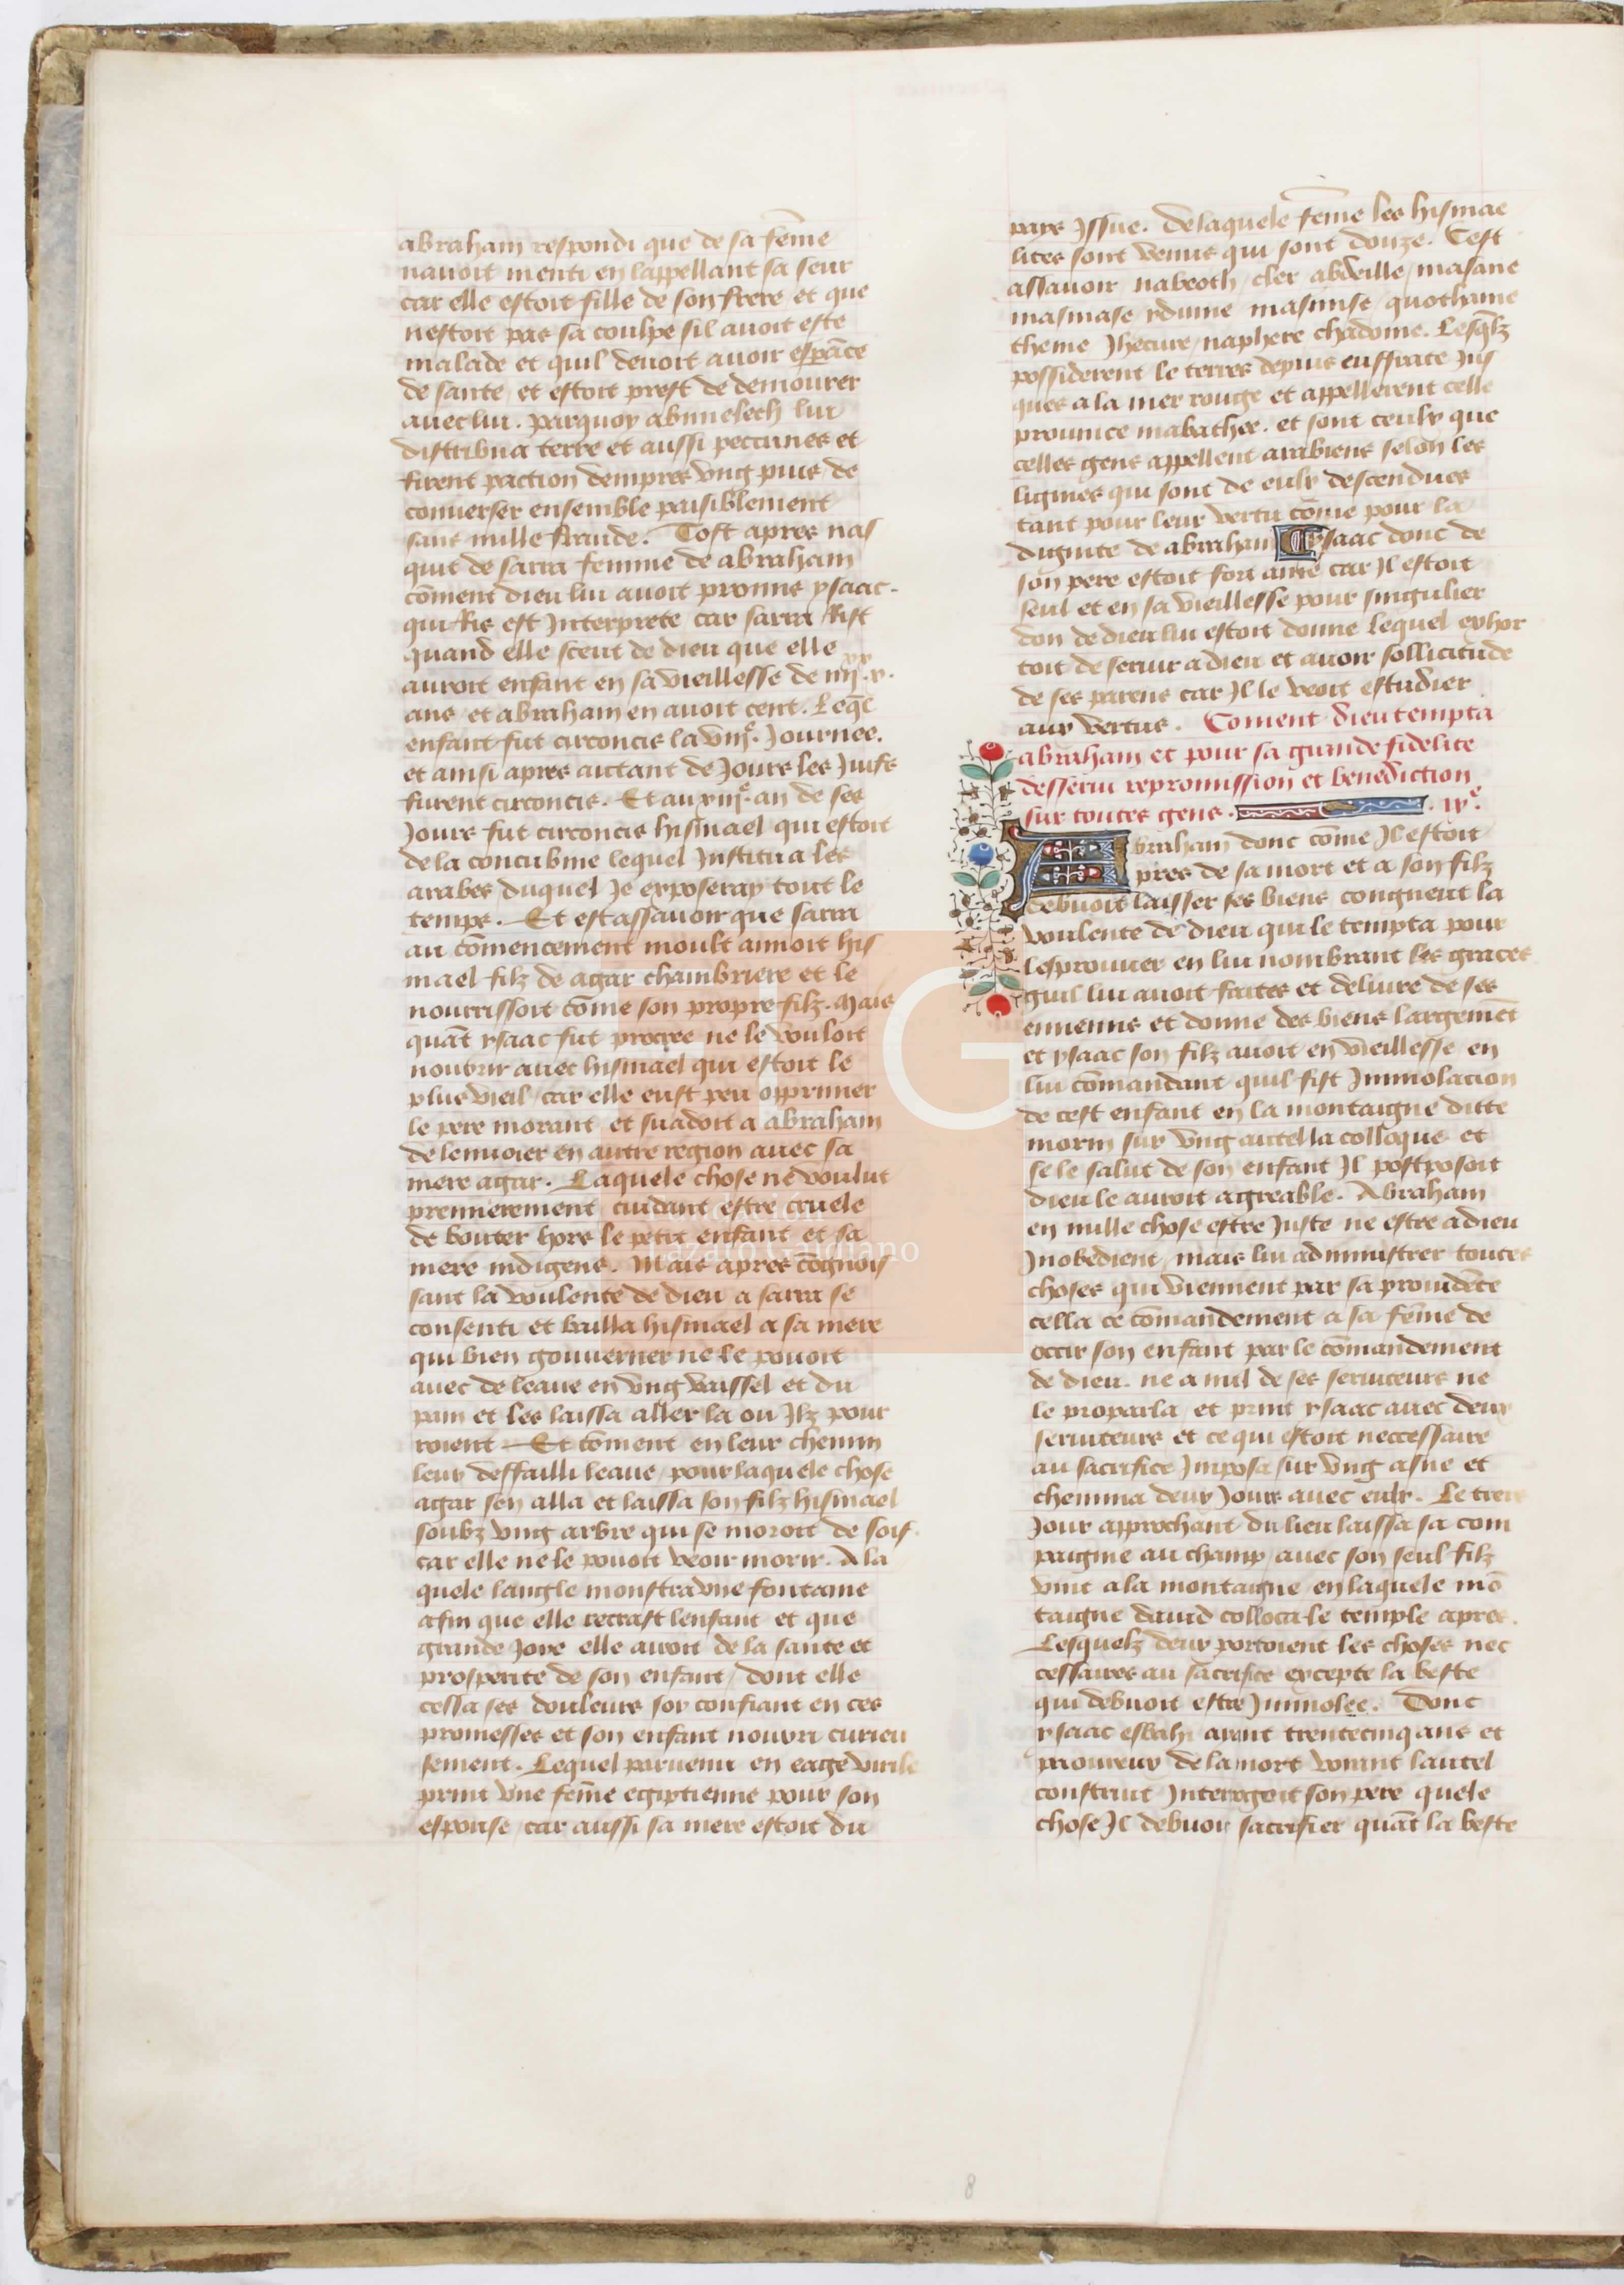 abraham respondi que de sa fēme
nauoit menti en lappellant sa seur
car elle estoit fille de son frere et que
nestoit pas sa coulpe sil auoit este
malade et quil deuoit auoir espāce
de sante et estoit prest de demourer
auec lui. parquoy abimelech lui
distribua terre et aussi peccunes et
firent paction dempres vng puis de
conuerser ensemble paisiblement
sans nulle fraude. Tost apres nas
quit de sarra femme de abraham
cōment dieu lui auoit promis ysaac.
qui Ris est Interprete car sarra Rist
quand elle sceut de dieu que elle
auroit enfant en sa vieillesse de iiij.xx x.
ans et abraham en auoit cent. Leq̄l
enfant fut circoncis la viije. Journee.
et ainsi apres autant de Jours les Juifs
furent circoncis. Et au xiije. an de ses
Jours fut circoncis hismael qui estoit
de la concubine lequel Institua les
arabes duquel Je exposeray tout le
temps. Et est assauoir que sarra
au cōmencement moult aimoit his
mael filz de agar chambriere et le
nourrissoit cōme son propre filz. Mais
quāt ysaac fut procree ne le vouloit
nourrir auec hismael qui estoit le
plus vieil car elle eust peu opprimer
le pere morant et suadoit a abraham
de lenuoier en autre region auec sa
mere agar. Laquele chose ne voulut
premierement cuidant estre cruele
de bouter hors le petit enfant et sa
mere indigens. Mais apres cōgnois
sant la voulente de dieu a sarra se
consenti et bailla hismael a sa mere
qui bien gouuerner ne le pouoit
auec de leaue en vng vaissel et du
pain et les laissa aller la ou Ilz pour
roient Et cōment en leur chemin
leur deffailli leaue pour laquele chose
agar sen alla et laissa son filz hismael
soubz vng arbre qui se moroit de soif.
car elle ne le pouoit veoir morir. A la
quele langle monstra vne fontaine
afin que elle recrast lenfant et que
grande Joye elle auroit de la sante et
prosperite de son enfant dont elle
cessa ses douleurs soy confiant en ces
promesses et son enfant nourri curieu
sement. Lequel paruenu en eage virile
print vne fēme egiptienne pour son
espouse car aussi sa mere estoit du
pays Issue. de laquele fēme les hismae
lites sont venus qui sont douze. Cest
assauoir nabeoth cler abdeille masane
masmase ydume masmise quothame
theme Jhecure naphere chadome. Lesq̄lz
possiderent le terres depuis euffrate Jus
ques a la mer rouge et appellerent celle
prouince mabathee. et sont ceulx que
celles gens appellent arabiens selon les
lignies qui sont de eulx descendues
tant pour leur vertu cōme pour la
dignite de abraham Ysaac donc de
son pere estoit fort aime car Il estoit
seul et en sa vieillesse pour singulier
don de dieu lui estoit donne lequel exhor
toit de seruir a dieu et auoir sollicitude
de ses parens car Il le veoit estudier
aux vertus. Coment dieu tempta
abraham et pour sa grande fidelite
desserui repromission et benediction
sur toutes gens. ixe.
Abraham donc cōme Il estoit
pres de sa mort et a son filz
debuoit laisser ses biens congneut la
voulente de dieu qui le tempta pour
lesprouuer en lui nombrant les graces
quil lui auoit faites et deliure de ses
ennemis et donne des biens largemēt
et ysaac son filz auoit en vieillesse en
lui cōmandant quil fist Immolacion
de cest enfant en la montaigne ditte
morin sur vng autel la colloque et
se le salut de son enfant Il postposoit
dieu le auroit agreable. Abraham
en nulle chose estre Juste ne estre a dieu
Inobedient mais lui administrer toutes
choses qui viennent par sa prouidēce
cella ce cōmandement a sa fēme de
occir son enfant par le cōmandement
de dieu. ne a nul de ses seruiteurs ne
le proparla et print ysaac auec deux
seruiteurs et ce qui estoit neccessaire
au sacrifice Imposa sur vng asne et
chemina deux Jours auec eulx. Le tiers
Jour approchant du lieu laissa sa com
paignie au champ auec son seul filz
vint a la montaigne en laquele mō
taigne dauid colloca le temple apres.
Lesquelz deux portoient les choses nec
cessaires au sacrifice excepte la beste
qui debuoit estre Immolee. Donc
ysaac esbahi aiant trentecinq ans et
paoureux de la mort voiant lautel
construit Interogoit son pere quele
chose Il debuoit sacrifier quāt la beste
8
G
Lázaro Galdiano